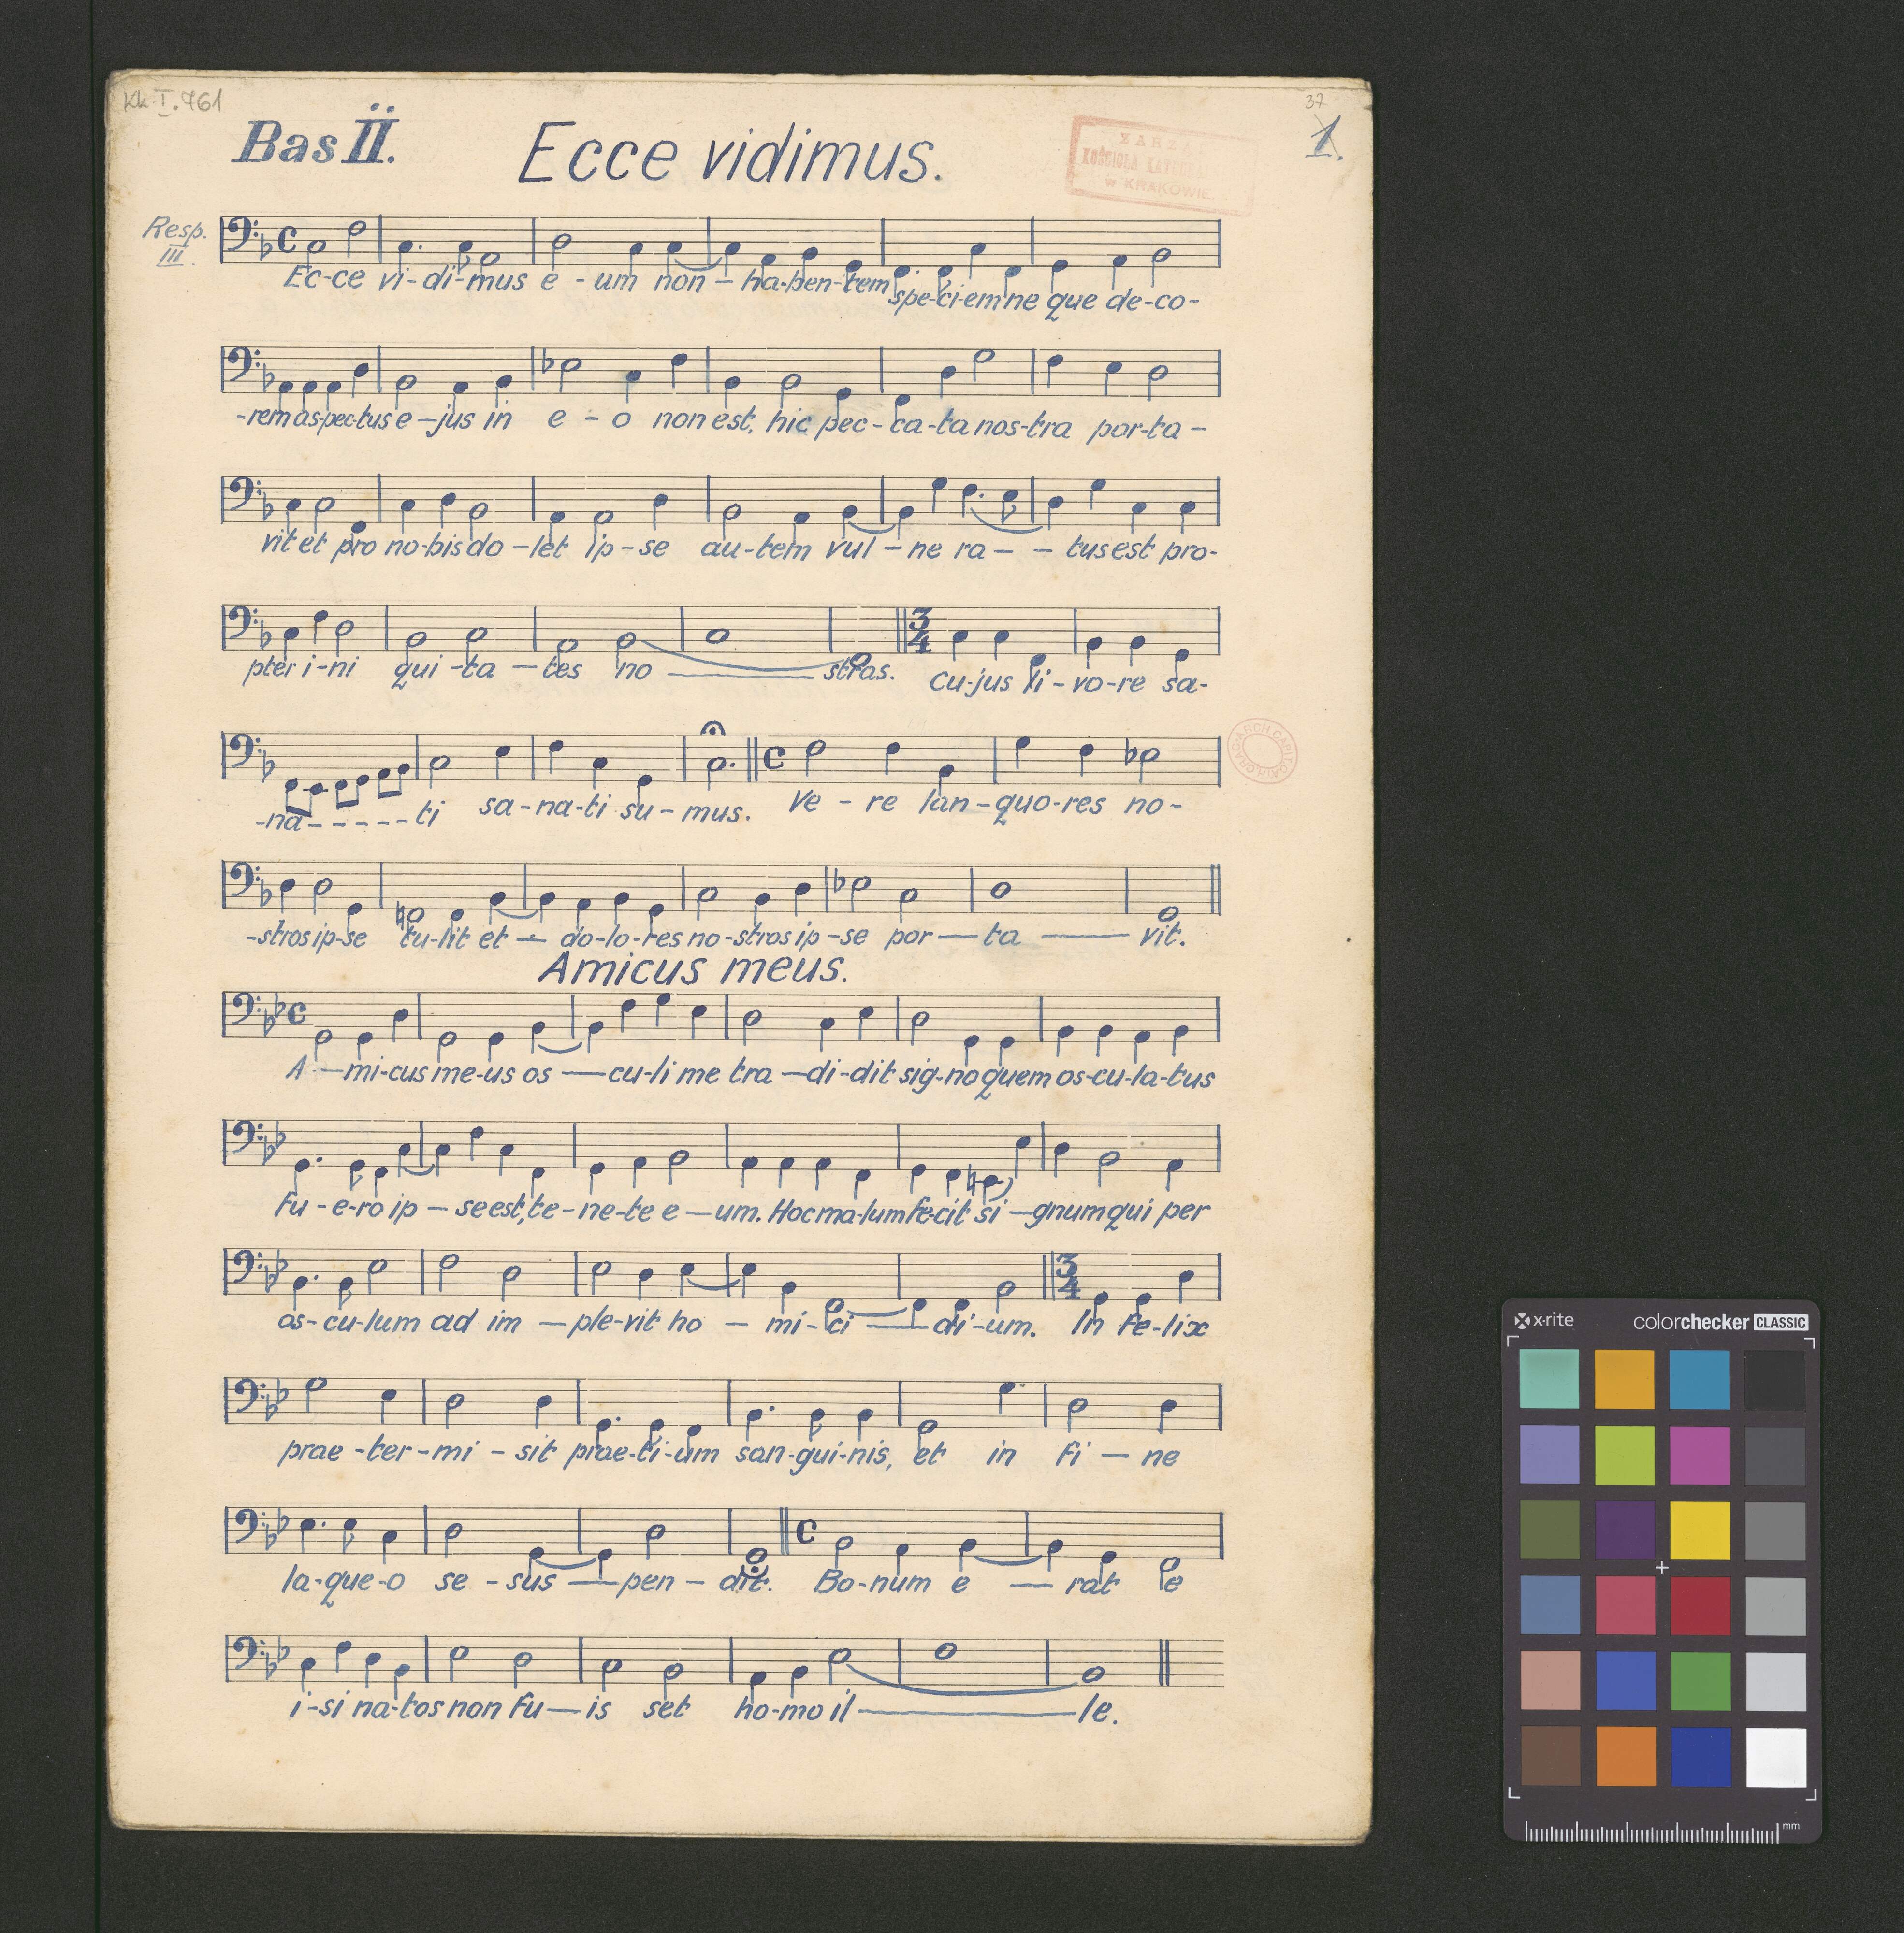 Kk. I. 761
37
1.
Bas II.
Ecce vidimus.
KOŚCIOŁA
w KRAKOWIE
Resp. III.
Ec-ce vi-di-mus e - um non - ha-ben-tem spe-ci-em ne que de-co-
-rem as-pec-tus e - jus in e - o non est, hic pec-ca-ta nos-tra por-ta -
vit et pro no-bis do - let ip-se au-tem vul - ne ra - - tus est pro-
pter i-ni qui-ta - tes no - stras. 3 4 cu-jus li-vo-re sa-
-na - - - - - ti sa-na-ti su-mus. C Ve - re lan-quo-res no-
-stros ip-se tu-lit et - do-lo-res no-stros ip-se por - ta - vit.
Amicus meus.
A - mi-cus me-us os - cu-li me tra - di-dit sig-no quem os-cu-la-tus
Fu-e-ro ip - se est, te-ne-te e - um. Hoc ma-lum fe-cit si - gnum qui per
os-cu-lum ad im - ple-vit ho - mi-ci - di-um. 3 4 In fe-lix
prae-ter-mi - sit prae-ti-um san-gui-nis, et in fi - ne
la-que-o se-sus - pen - dit. C Bo-num e - rat e
i-si na-tos non fu - is set ho-mo il - le.
x-rite colorchecker CLASSIC
mm